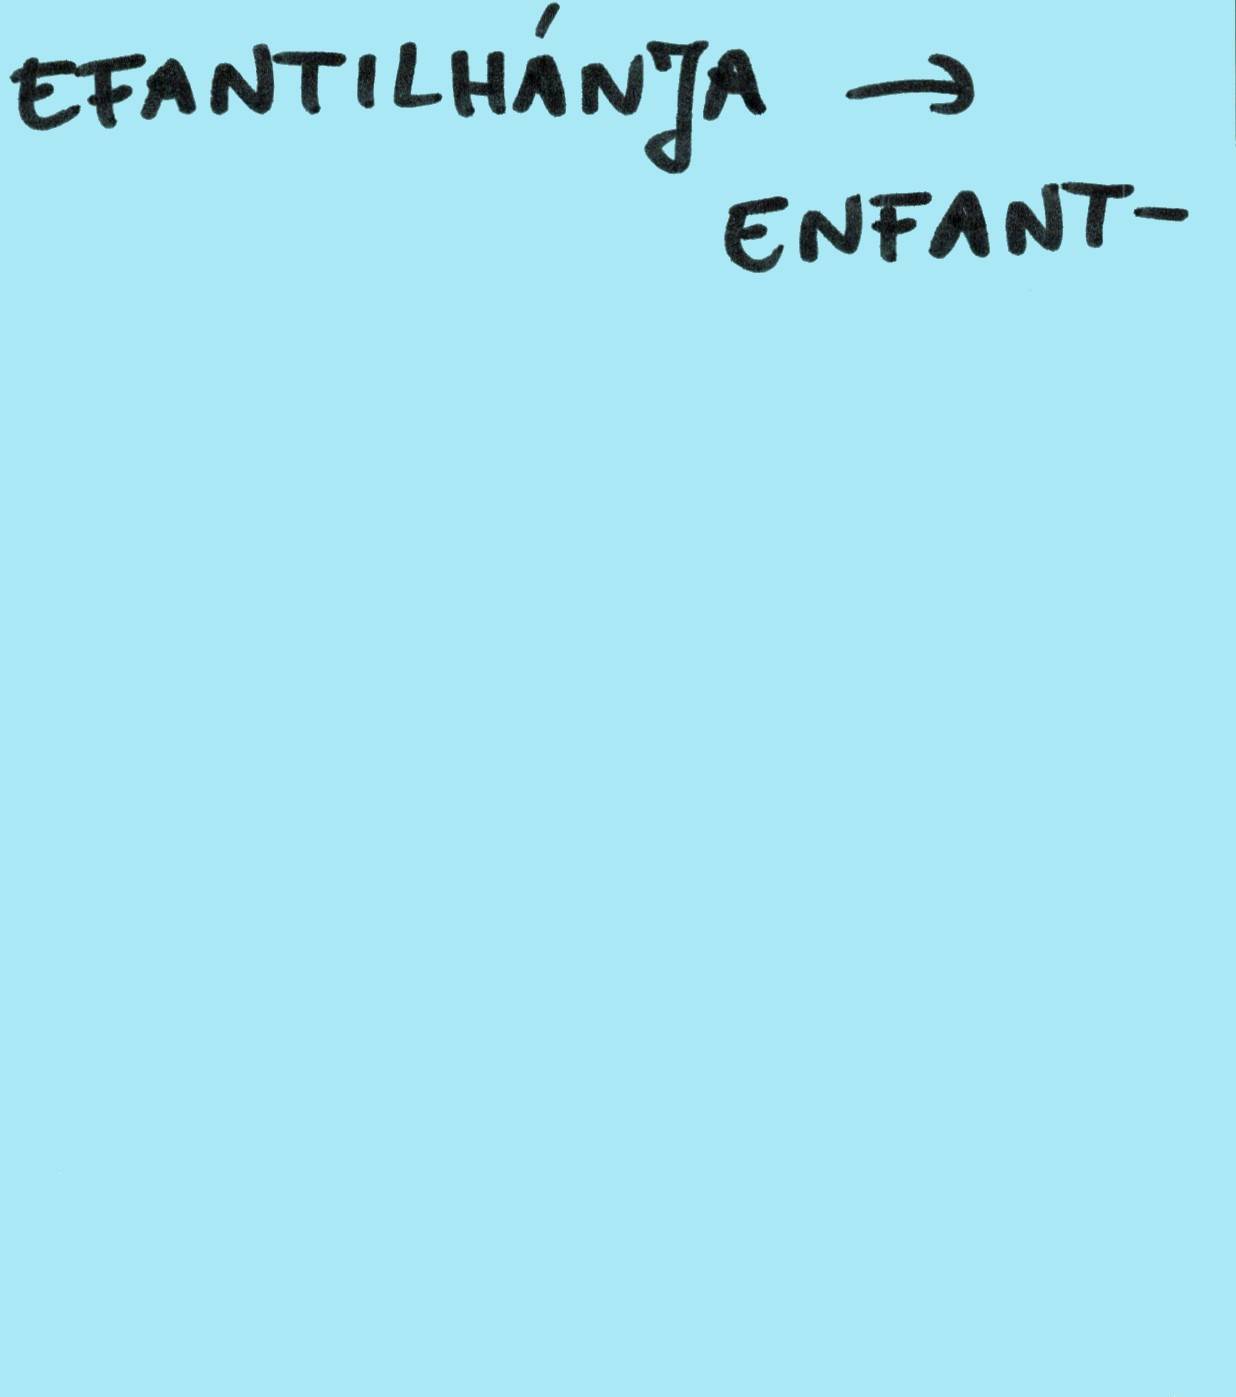 EFANTILHÁNJA →
ENFANT-